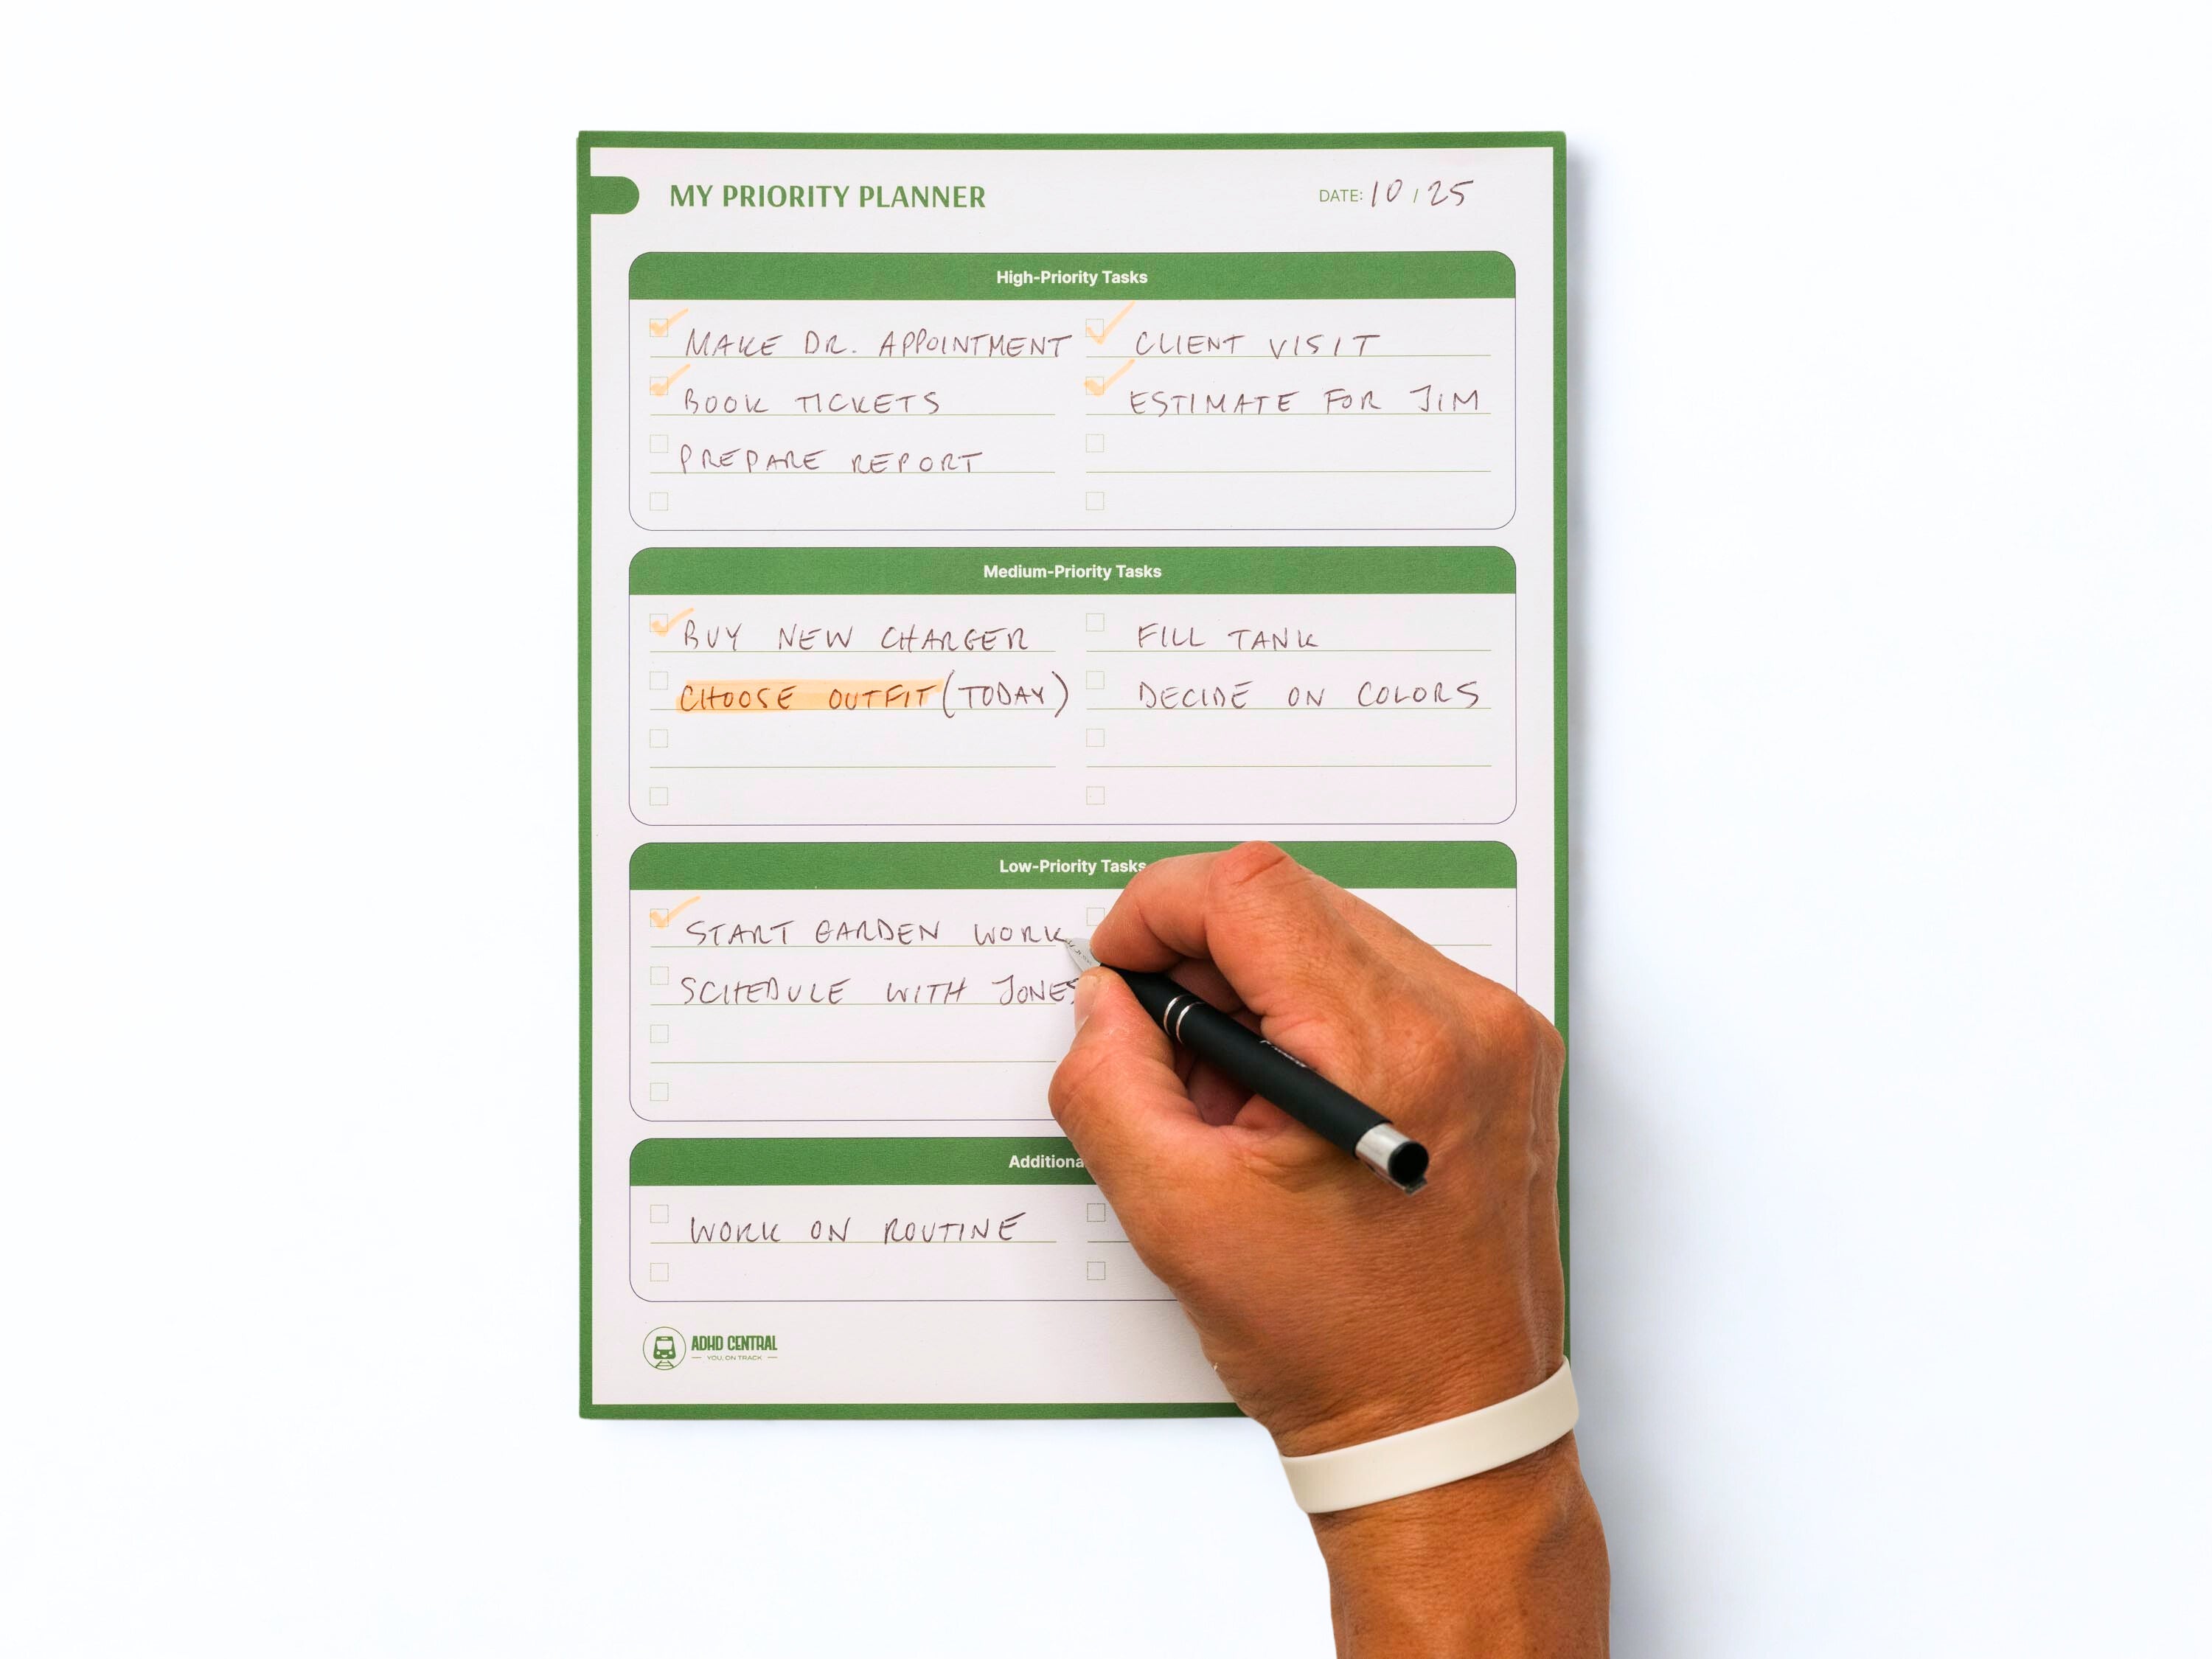 MY PRIORITY PLANNER
DATE: 10 / 25
High-Priority Tasks
MAKE DR. APPOINTMENT
CLIENT VISIT
BOOK TICKETS
ESTIMATE FOR JIM
PREPARE REPORT
Medium-Priority Tasks
BUY NEW CHARGER
FILL TANK
CHOOSE OUTFIT (TODAY)
DECIDE ON COLORS
Low-Priority Tasks
START GARDEN WORK
SCHEDULE WITH JONES
Additiona
WORK ON ROUTINE
ADHD CENTRAL
YOU, ON TRACK